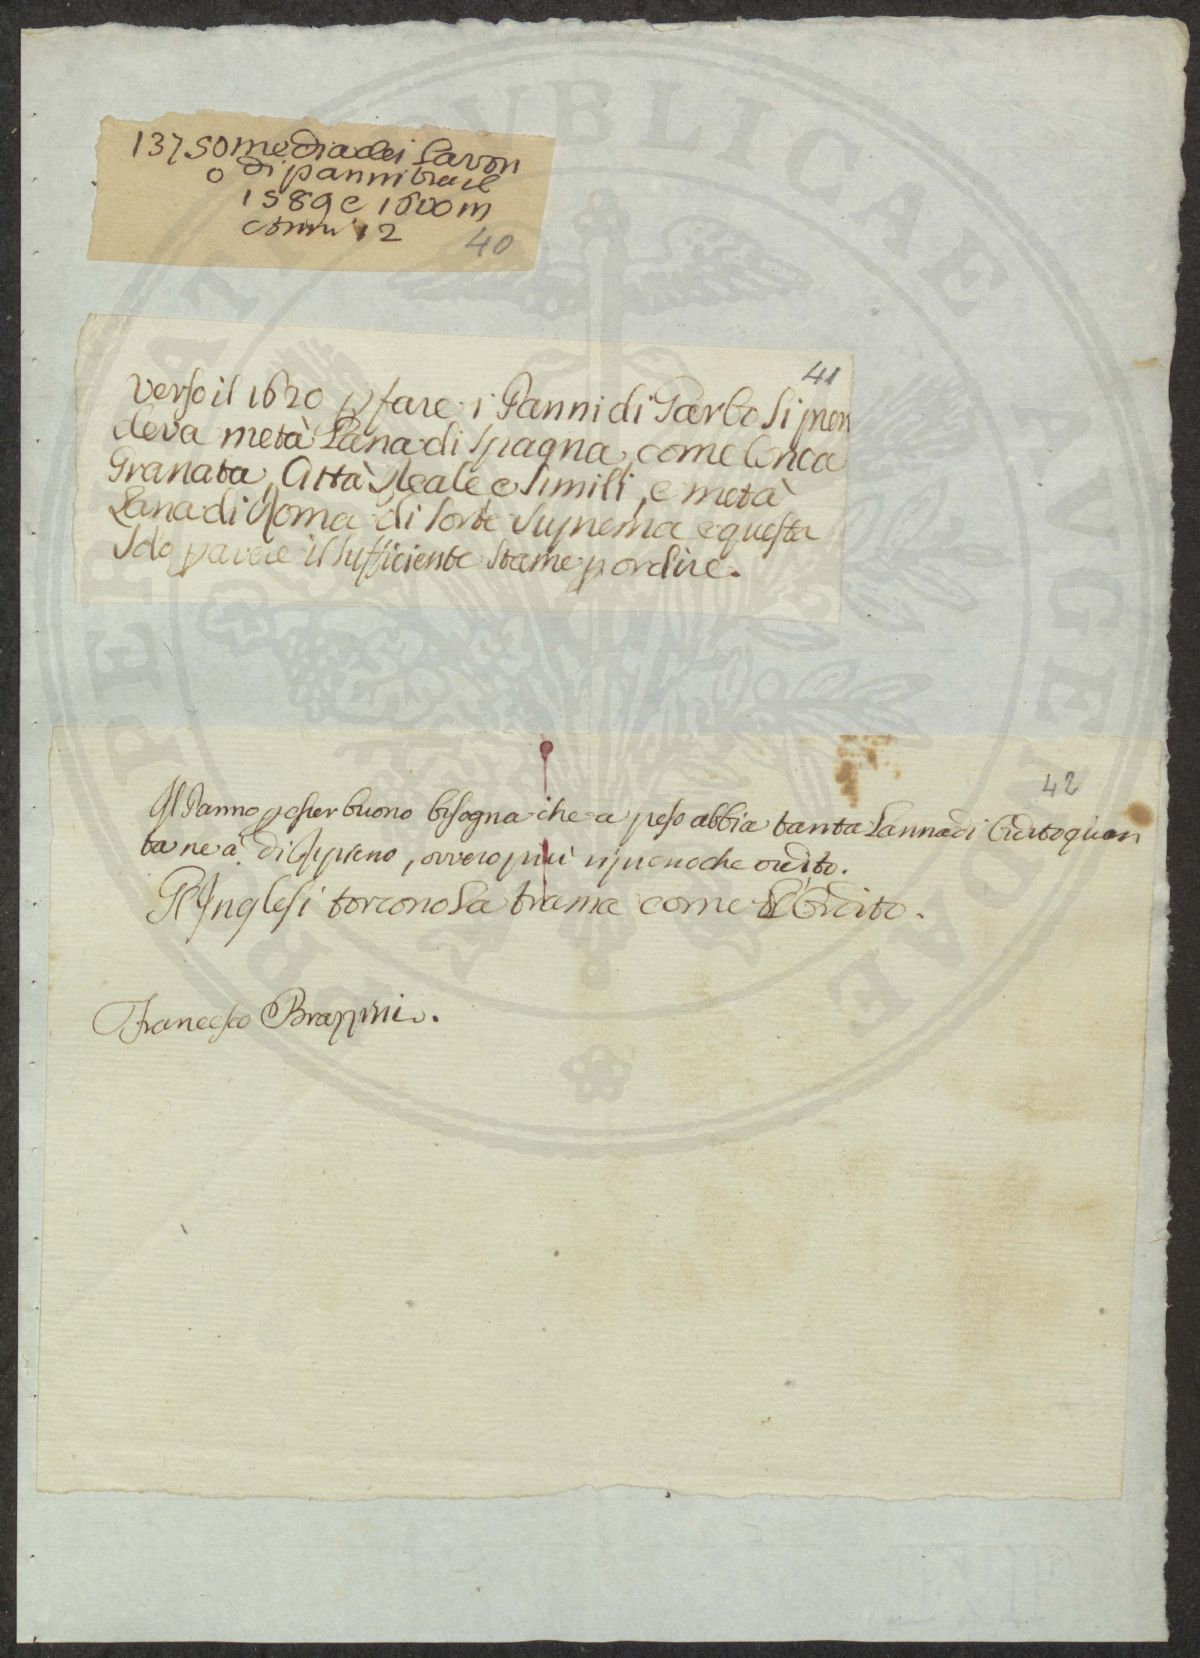 13750 media dei lavori
o di panni tra il
1589 e 1600 in
anni 12
40
41
Verso il 1620 p fare i Panni di Garbo si pren
deva metà Lana di Spagna, come Conca
Granata, Città Reale e simili, e metà
Lana di Roma di sorte suprema e questa
solo p avere il sufficiente stame p ordire.
42
Il Panno p esser buono bisogna che a peso abbia tanta Lanna di Ordito quan
ta ne à di ripieno, ovvero più ripieno che ordito.
Gl'Inglesi torcono la trama come l'Ordito.
Francesco
PUBLICAE